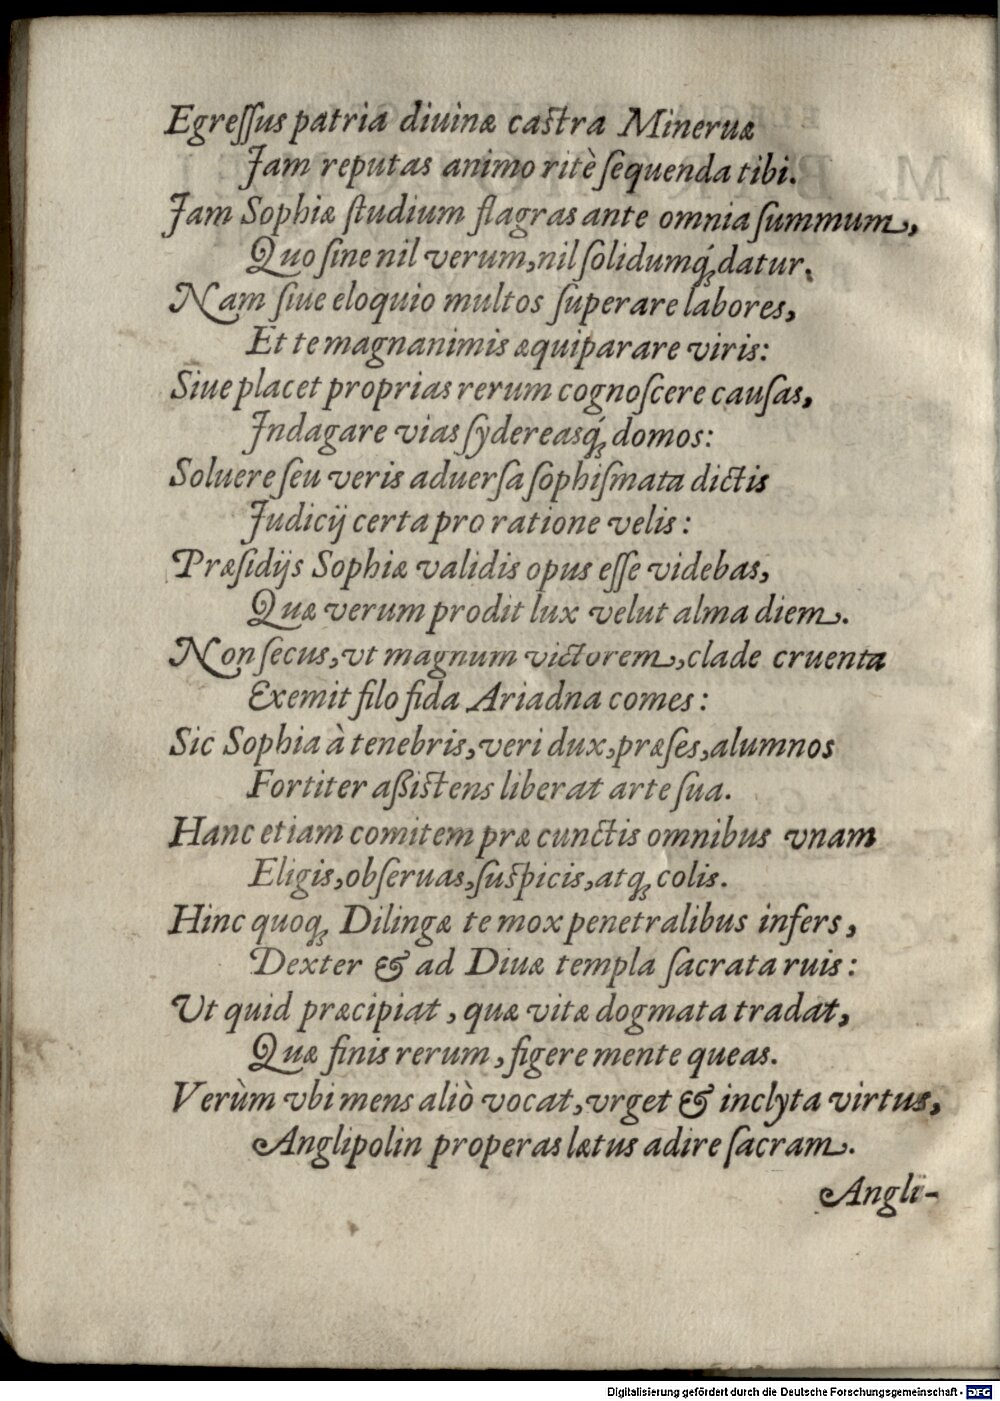 Egreſſus patria diuinæ caſtra Mineruæ
Jam reputas animo ritè ſequenda tibi.
Jam Sophiæ ſtudium flagras ante omnia ſummum,
Quo ſine nil verum, nil ſolidumq́ꝫ datur.
Nam ſiue eloquio multos ſuperare labores,
Et te magnanimis æquiparare viris:
Siue placet proprias rerum cognoſcere cauſas,
Jndagare vias ſydereasq́ꝫ domos:
Soluere ſeu veris aduerſa ſophiſmata dictis
Judicij certa pro ratione velis:
Præſidijs Sophiæ validis opus eſſe videbas,
Quæ verum prodit lux velut alma diem.
Non ſecus, vt magnum victorem, clade cruenta
Exemit filo fida Ariadna comes:
Sic Sophia à tenebris, veri dux, præſes, alumnos
Fortiter aßiſtens liberat arte ſua.
Hanc etiam comitem præ cunctis omnibus vnam
Eligis, obſeruas, ſuſpicis, atqꝫ colis.
Hinc quoqꝫ Dilingæ te mox penetralibus infers,
Dexter & ad Diuæ templa ſacrata ruis:
Ut quid præcipiat, quæ vitæ dogmata tradat,
Quæ finis rerum, figere mente queas.
Verùm vbi mens aliò vocat, vrget & inclyta virtus,
Anglipolin properas lætus adire ſacram.
Angli-
Digitalisierung gefördert durch die Deutsche Forschungsgemeinschaft - DFG